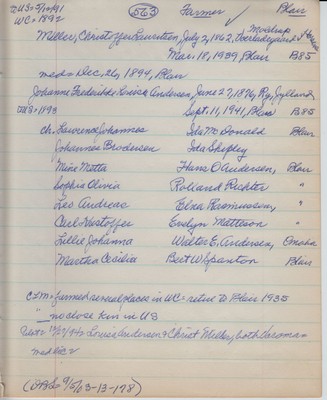 TUS: 5/10/91 563 Farmer ✓ Blair
WC: 1892
Miller, Christoffer Lauritsen, July 2, 1862,
Mar. 18, 1939, Blair B85
med: Dec. 26, 1894, Blair
Johanne Fredrikke Louise Andersen, June 22, 1876, Ry, Jylland,
TUS: 1893 Sept. 11, 1941, Blair B85
ch. Laurence Johannes Ida McDonald Blair
Johannes Brodersen Ida Shipley
Mine Metta Hans O Andersen, Blair
Sophie Olivia Roland Richter "
Les Andreas Elna Rasmussen, "
Carl Kristoffer Evelyn Matteson "
Lillie Johanna Walter E. Andersen, Omaha
Martha Cecilia Bert W Spanton Blair
C & M: farmed several places in WC: retired to Blair 1935
" no close kin in US
Louise Andersen & Christ Miller, both Daromao
med: EC 2
(DBS 9/5/63-13-178)